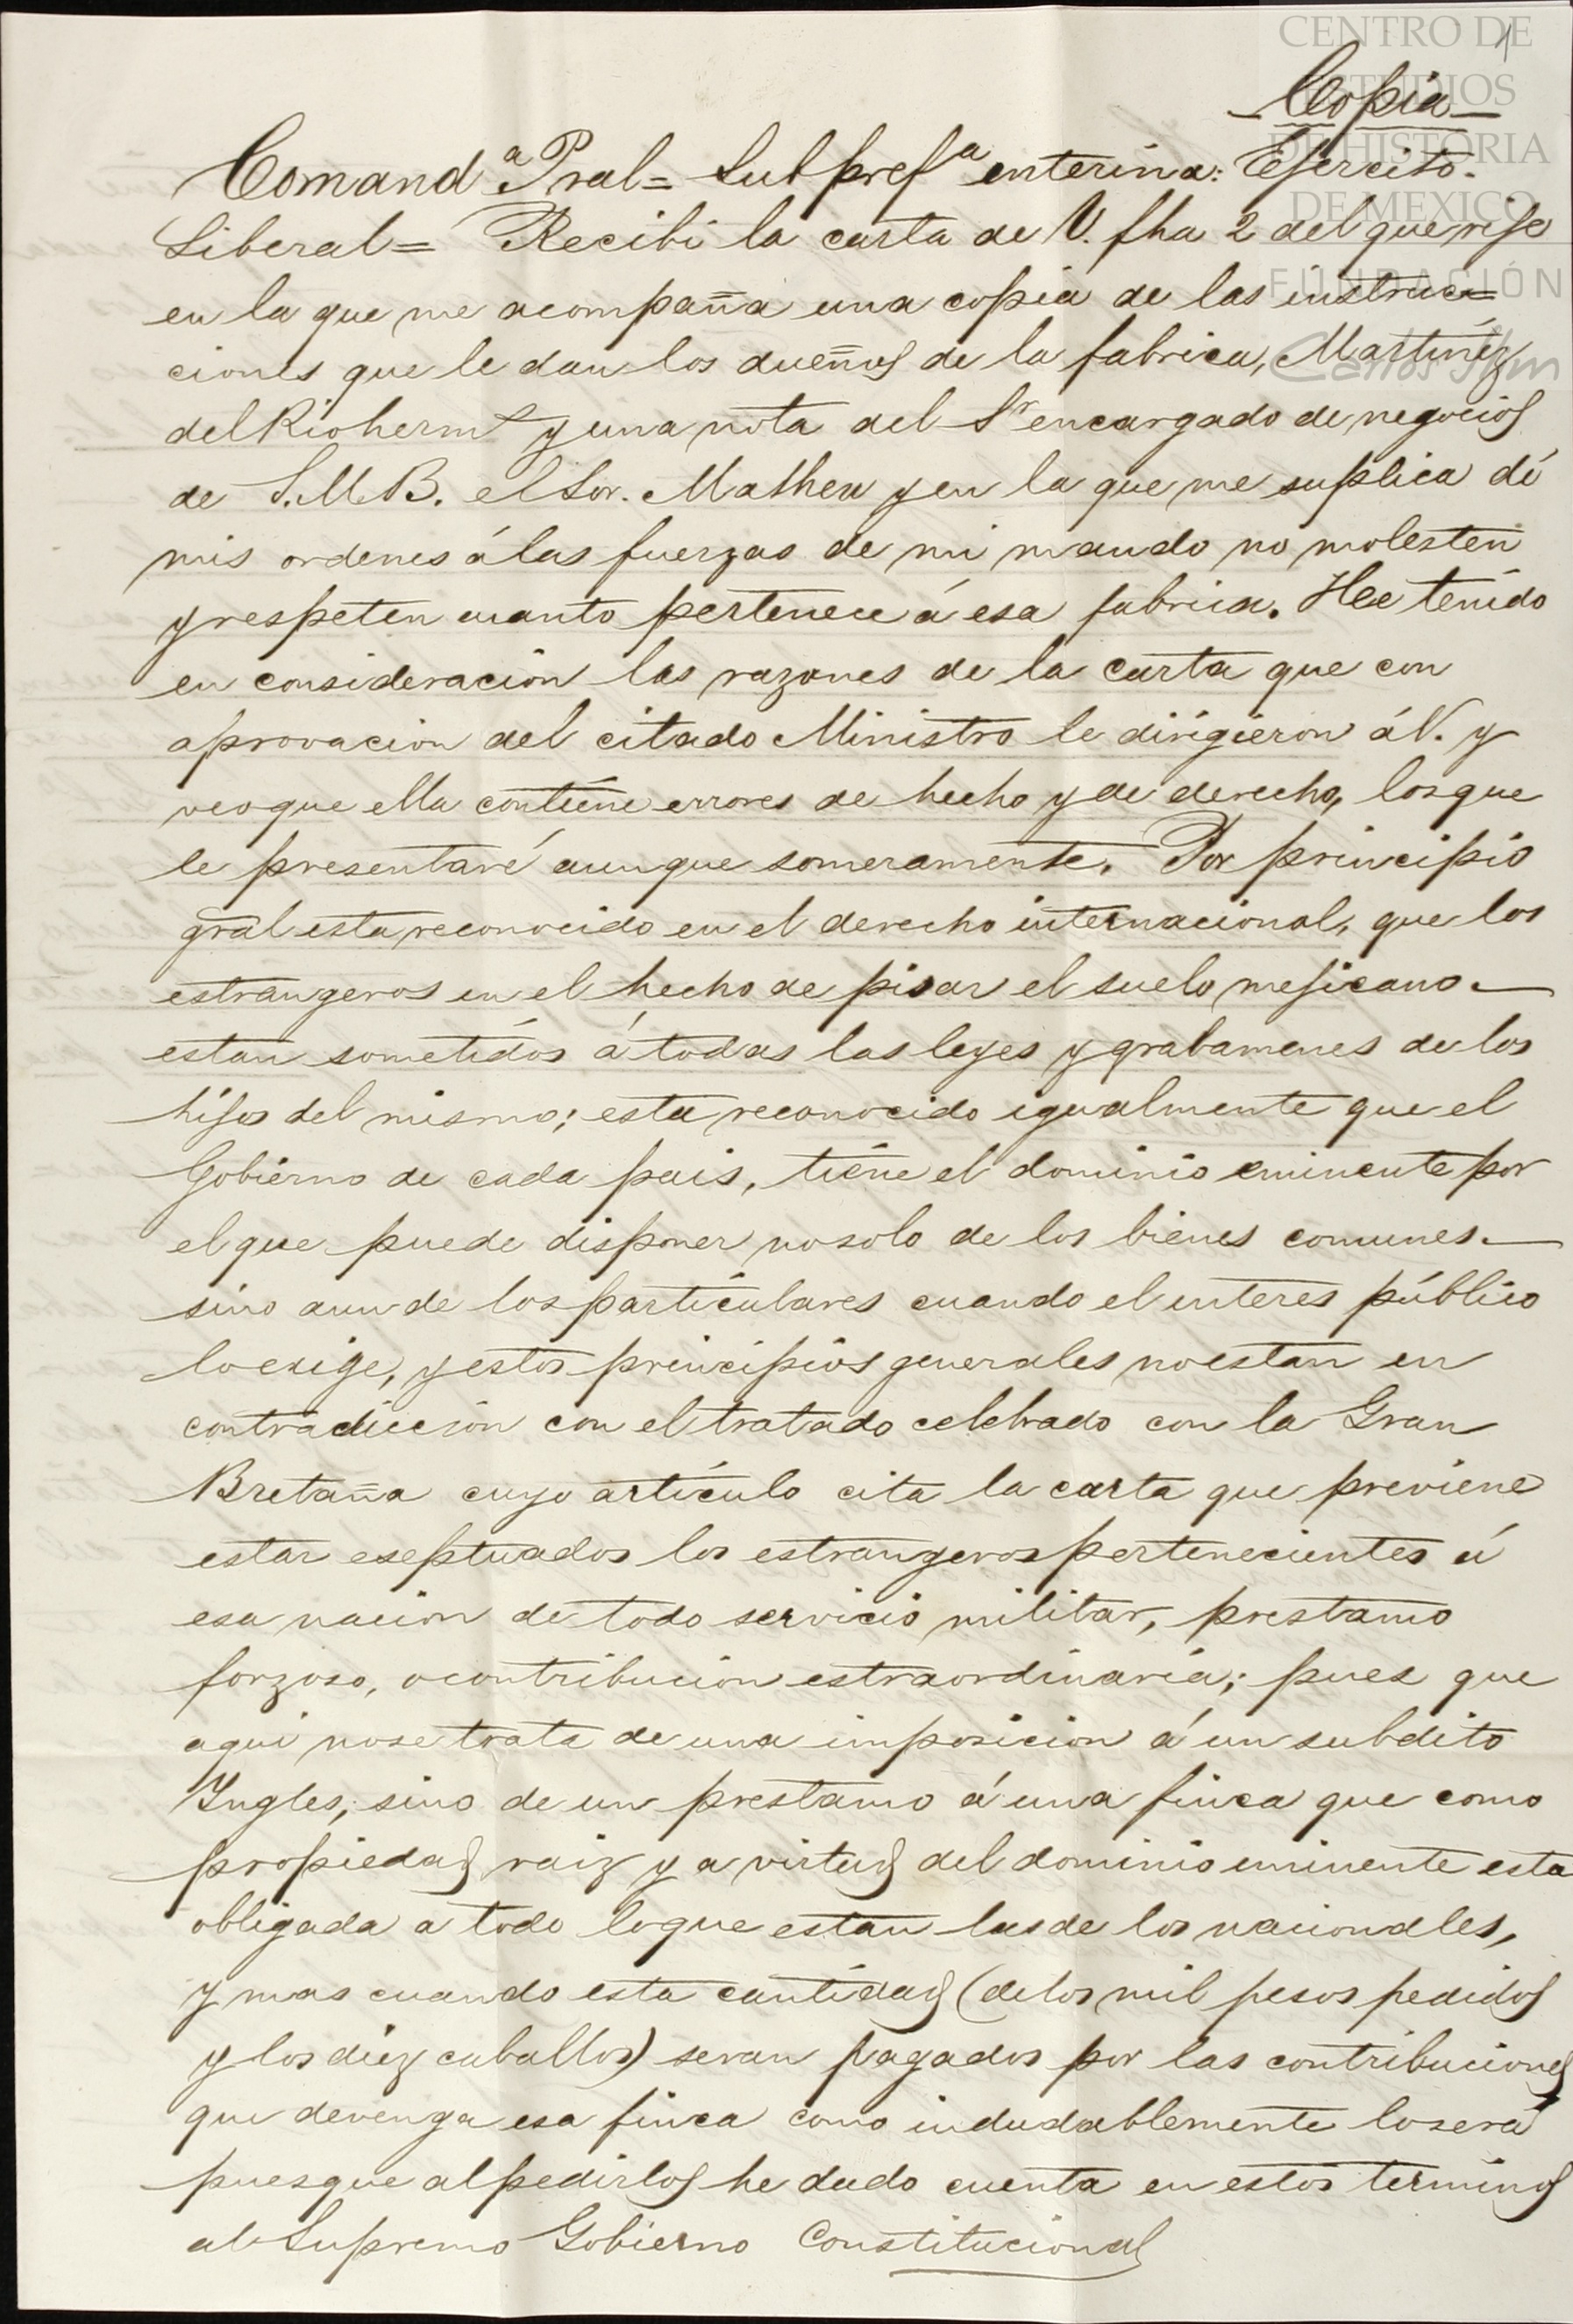 CENTRO DE
ESTUDIOS
DE HISTORIA
DE MEXICO
FUNDACIÓN
Carlos Slim
1
Copia
Comand.ª Pral= Subprefª enterina: Ejercito.
Liberal= Recibi la carta de V. fha 2 del que rije
en la que me acompaña una copia de las instruc=
ciones que le dan los dueños de la fabrica, Martinez
del Rio hermˢ y una nota del Sʳ encargado de negocios
de S.M.B. el Sor. Mathew y en la que me suplica dé
mis ordenes á las fuerzas de mi mando no molesten
y respeten cuanto pertenece á esa fabrica. Hee tenido
en consideracion las razones de la carta que con
aprovacion del citado Ministro le dirigieron á V. y
veo que ella contiene errores de hecho y de derecho, los que
le presentaré aunque someramente. Por principio
gral esta reconocido en el derecho internacional, que los
estrangeros en el hecho de pisar el suelo mejicano
estan sometidos á todas las leyes y grabamenes de los
hijos del mismo; esta reconocido igualmente que el
Gobierno de cada pais, tiene el dominio eminente por
el que puede disponer no solo de los bienes comunes
sino aun de los particulares cuando el interes público
lo exige, y estos principios generales no estan en
contradiccion con el tratado celebrado con la Gran
Bretaña cuyo artículo cita la carta que previene
estar eseptuados los estrangeros pertenecientes á
esa nacion de todo servicio militar, prestamo
forzoso, o contribucion estraordinaria; pues que
aqui no se trata de una imposicion á un subdito
Ingles, sino de un prestamo á una finca que como
propiedad raiz y a virtud del dominio eminente esta
obligada a todo lo que estan las de los nacionales,
y mas cuando esta cantidad (de los mil pesos pedidos
y los diez caballos) seran pagados por las contribuciones
que devenga esa finca como indudablemente lo será
pues que al pedirlos he dado cuenta en estos terminos
al Supremo Gobierno Constitucional